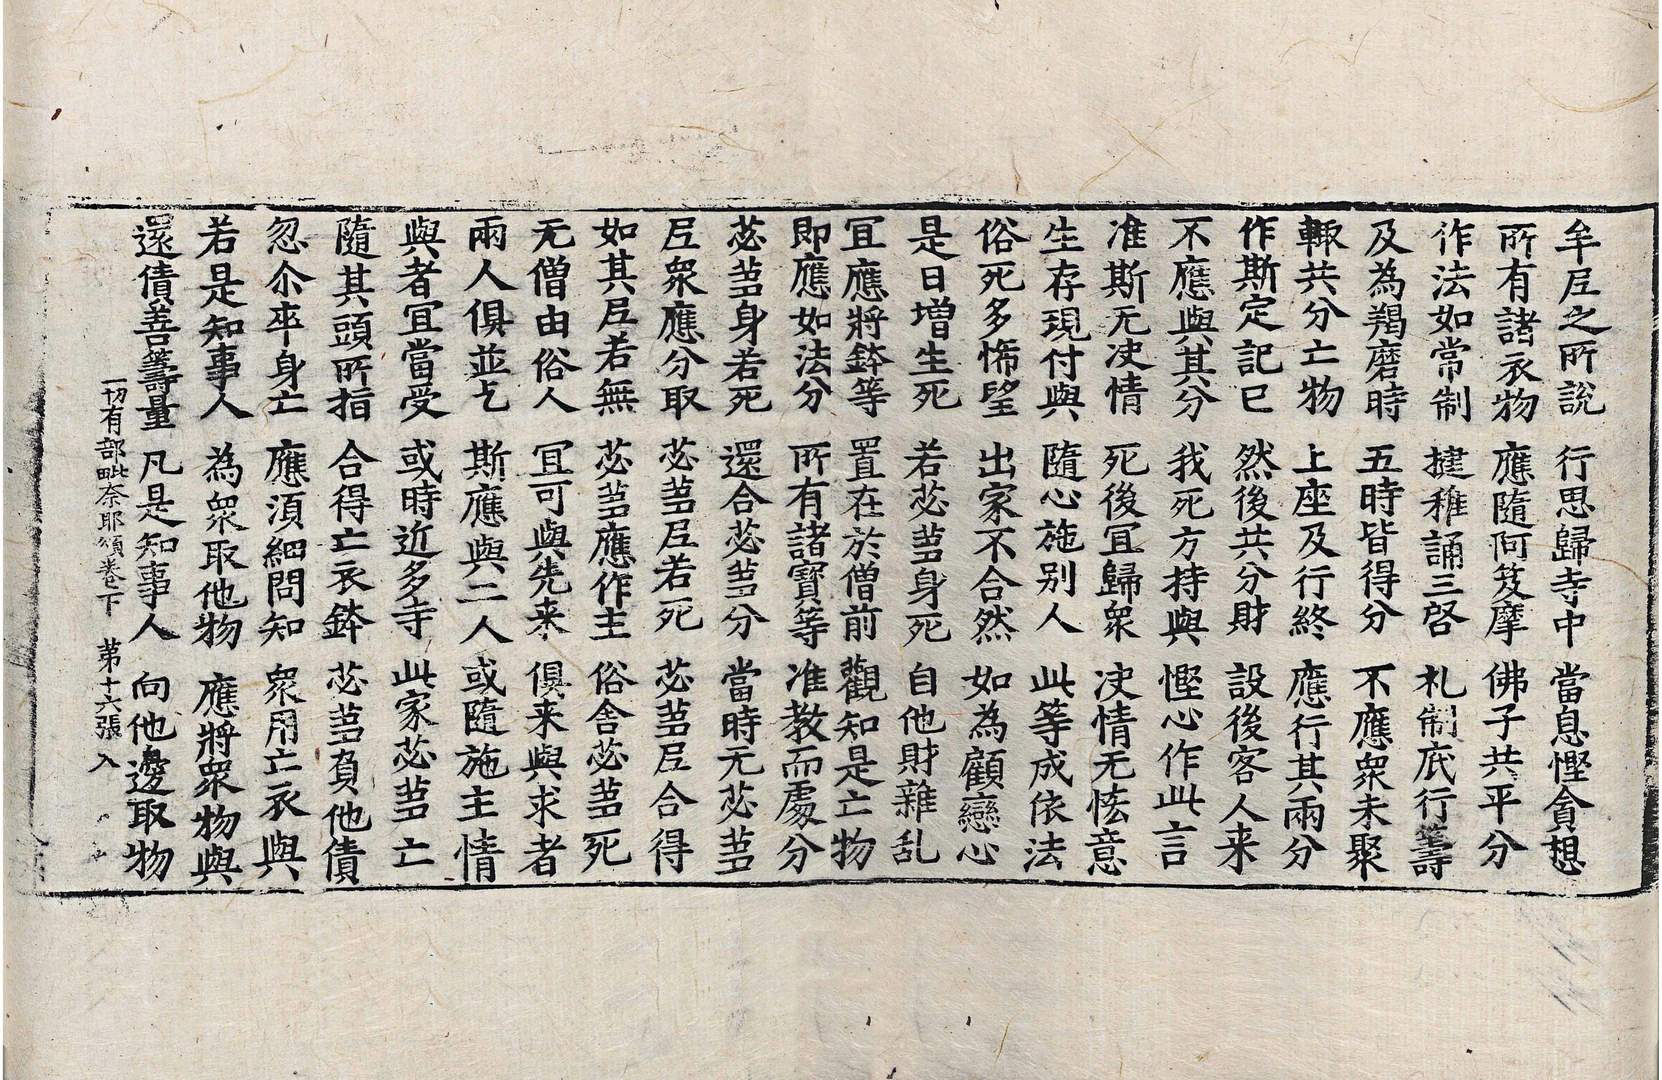 牟尼之所說 行思歸寺中 當息慳貪想
所有諸衣物 應隨阿笈摩 佛子共平分
作法如常制 揵稚誦三啓 礼制底行籌
及為羯磨時 五時皆得分 不應衆未聚
輙共分亡物 上座及行終 應行其兩分
作斯定記已 然後共分財 設後客人来
不應與其分 我死方持與 慳心作此言
准斯无决情 死後冝歸衆 决情无恡意
生存現付與 隨心施别人 此等成依法
俗死多悕望 出家不合然 如為顧戀心
是日增生死 若苾蒭身死 自他財雜乱
冝應將鉢等 置在於僧前 觀知是亡物
即應如法分 所有諸寶等 准教而處分
苾蒭身若死 還合苾蒭分 當時无苾蒭
尼衆應分取 苾蒭尼若死 苾蒭尼合得
如其尼若無 苾蒭應作主 俗舍苾蒭死
无僧由俗人 冝可與先来 俱来與求者
兩人俱並乞 斯應與二人 或隨施主情
與者冝當受 或時近多寺 此家苾蒭亡
隨其頭所指 合得亡衣鉢 苾蒭負他債
忽尒卒身亡 應須細問知 衆用亡衣與
若是知事人 為衆取他物 應將衆物與
還債善籌量 凡是知事人 向他邊取物
一切有部毗奈耶頌卷下 第十六張 入